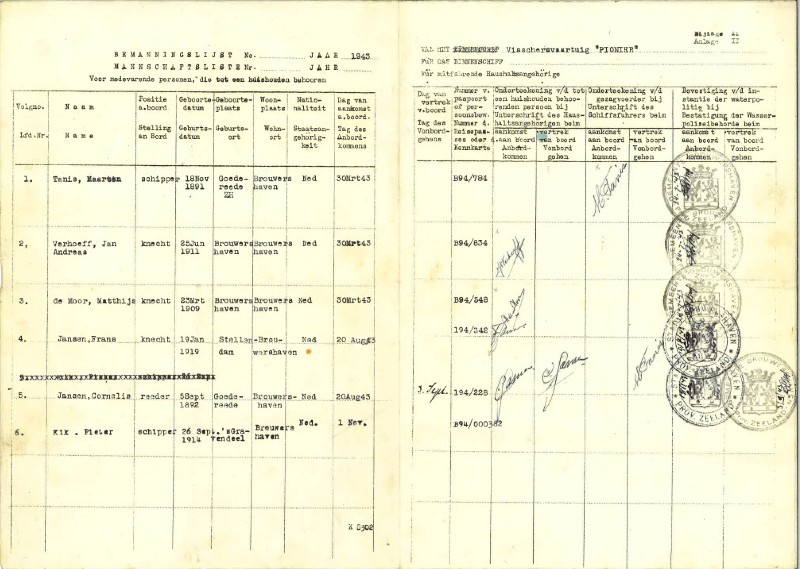 BEMANNINGSLIJST No. JAAR 1943
MANNSCHAFTSLISTE Nr. JAHR
Voor medevarende personen, die tot een huishouden behooren
Volgno. Naam Positie a.boord Geboorte- datum Geboorte- plaats Woon- plaats Natio- naliteit Dag van aankomst a.boord.
Lfd.Nr. Name Stellung an Bord Geburts- datum Geburts- ort Wohn- ort Staatsan- gehörig- keit Tag des Anbord- kommens
1. Tanis, Maarten schipper 18Nov 1891 Goede- reede ZH Brouwers haven Ned 30Mrt43
2, Verhoeff, Jan Andreas knecht 25Jun 1911 Brouwers haven Brouwers haven Ned 30Mrt43
3. de Moor, Matthijs knecht 23Mrt 1909 Brouwers haven Brouwers haven Ned 30Mrt43
4. Jansen,Frans knecht 19Jan 1919 Stellen- dam Brou- wershaven Ned 20 Aug43
5. Jansen,Cornelis reeder 5Sept 1892 Goede- reede Brouwers- haven Ned 20Aug43
6. Kik . Pieter schipper 26 Sept. 1914 'sGra vendeel Brouwers haven Ned. 1 Nov.
K 5302
Bijlage II
Anlage II
VAN HET Visschersvaartuig "PIONIER"
FÜR DAS BINNENSCHIFF
Für mitfahrende Haushaltsangehörige
Dag van vertrek v.boord Nummer v. paspoort of per- soonsbew. Onderteekening v/d tot een huishouden behoo- renden persoon bij Onderteekening v/d gezagvoerder bij Bevestiging v/d in- stantie der waterpo- litie bij
Tag des Vonbord- gehens Nummer d. Reisepas- ses oder d. Kennkarte Unterschrift des Haus- haltsangehörigen beim Unterschrift des Schiffsführers beim Bestätigung der Wasser- polizeibehörde beim
aankomst aan boord Anbord- kommen vertrek van boord Vonbord gehen aankomst aan boord Anbord- kommen vertrek van boord Vonbord- gehen aankomst aan boord Anbord- kommen vertrek van boord Vonbord- gehen
B94/784
B94/834
B94/548
194/342
3. Sept. 194/228
B94/000382
PROV. ZEELAND